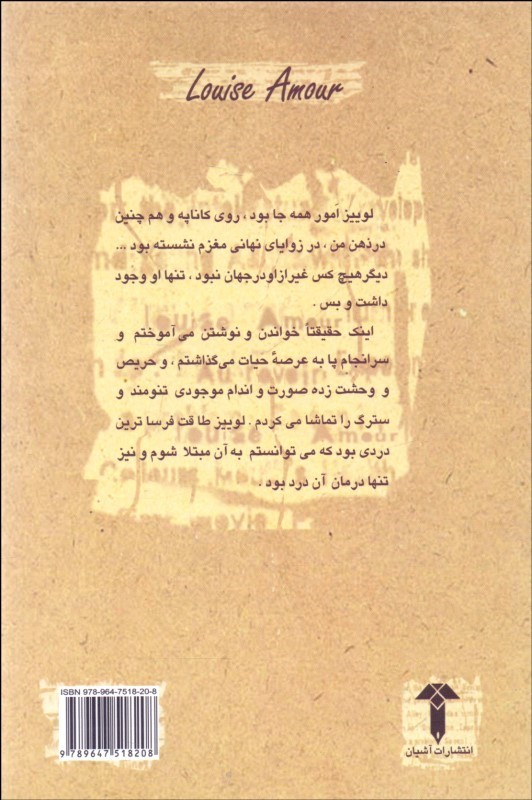 Louise Amour
لوییز آمور همه جا بود ، روی کاناپه و هم چنین
درذهن من ، در زوایای نهانی مغزم نشسته بود ...
دیگرهیچ کس غیرازاودرجهان نبود ، تنها او وجود
داشت و بس .
اینک حقیقتاً خواندن و نوشتن می آموختم و
سرانجام پا به عرصهٔ حیات می‌گذاشتم ، و حریص
و وحشت زده صورت و اندام موجودی تنومند و
سترگ را تماشا می کردم . لوییز طاقت فرسا ترین
دردی بود که می توانستم به آن مبتلا شوم و نیز
تنها درمان آن درد بود .
ISBN 978-964-7518-20-8
9 789647 518208
انتشارات آشیان